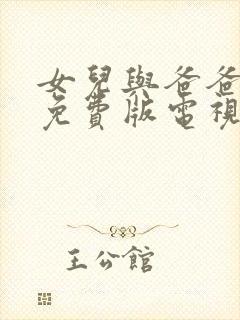 女兒與爸爸
免費版電視
王公館